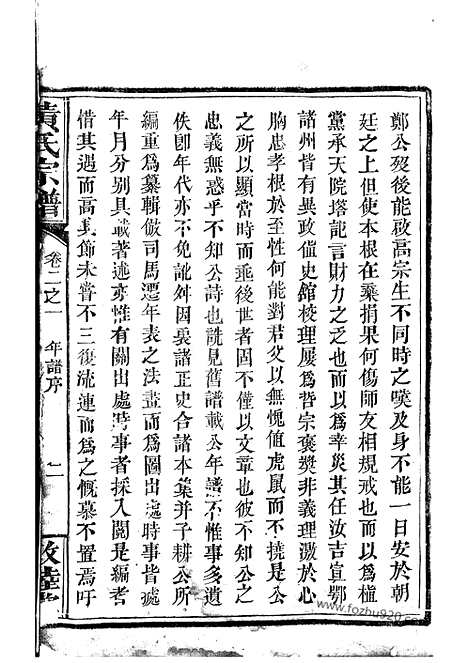 鄭公歿後能啟高宗生不同時之嘆及身不能一日安於朝
廷之上但使本根在棄捐果何傷師友相規戒也而以為植
黨承天院塔記言財力之乏也而以為幸災其任汝吉宣鄂
諸州皆有異政值史館校理屢為哲宗褒奬非義理激於心
胸忠孝根於至性何能對君父以無愧值虎鼠而不撓是公
之所以顯當時而垂後世者固不僅以文章也彼不知公之
忠義無惑乎不知公詩也詵見舊譜載公年譜不惟事多遺
佚卽年代亦不免訛舛因裒諸正史合諸本集并子耕公所
編重為纂輯倣司馬遷年表之法畫而為圖出處時事皆遞
年月分別具載著述亦惟有關出處時事者採入閱是編者
惜其遇而高其節未嘗不三復流連而為之慨慕不置焉吁
黃氏宗譜
卷二之一
年譜序
二
敦睦堂
www.fozhu920.com